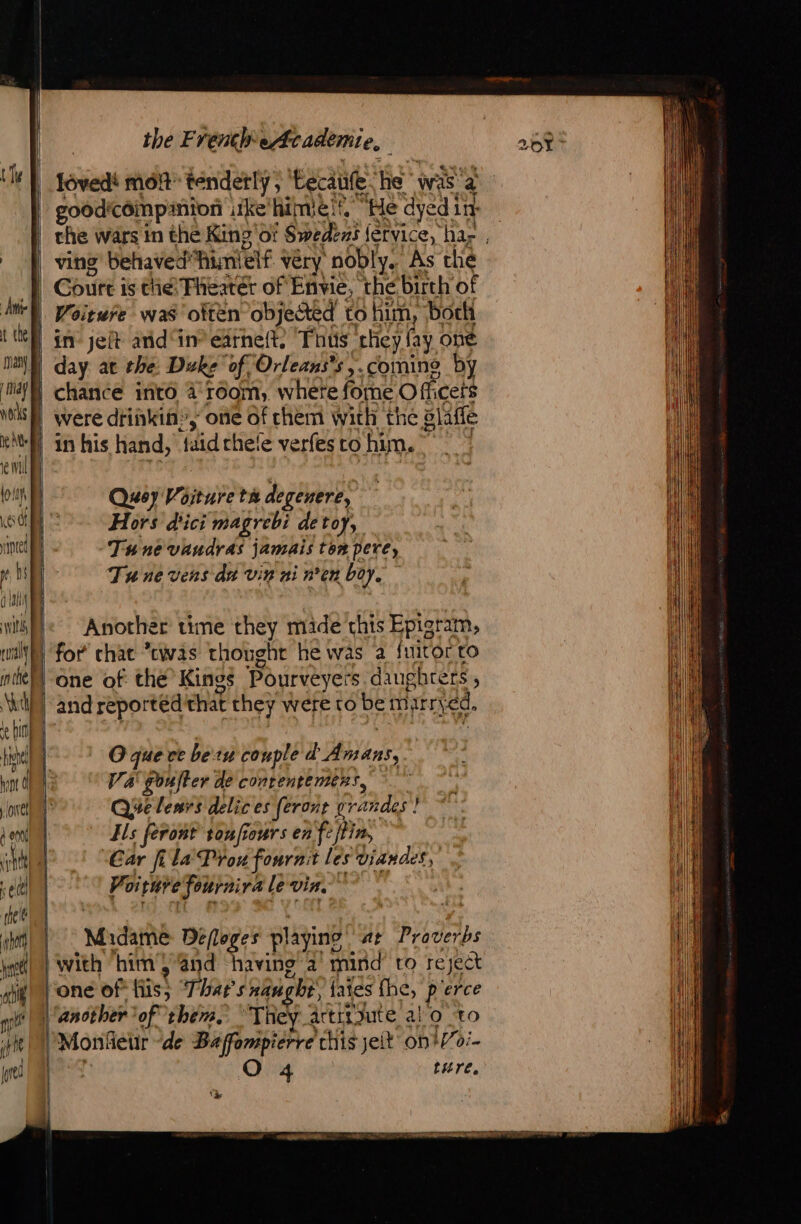 the French Academie. 201
loved most tenderly; because he was a
good companion like himself. He dyed in
the wars in the King of Swedens service, ha-
ving behaved himself very nobly. As the
Court is the Theater of Envie, the birth of
Voiture was often objected to him, both
in jest and in earnest. Thus they say one
day at the Duke of Orleans's, coming by
chance into a room, where some Officers
were drinking, one of them with the glasse
in his hand, said these verses to him.
Quoy Voiture tu degenere,
Hors d'ici magrebi de toy,
Tu ne vaudras jamais ton pere,
Tu ne vens du vin ni n'en boy.
Another time they made this Epigram,
for that 'twas thought he was a suitor to
one of the Kings Pourveyers daughters,
and reported that they were to be married.
O que ce beau couple d'Amans,
Va gouster de contentemens,
Que leurs delices seront grandes!
Ils seront tousiours en festin,
Car si la Prou fournit les viandes,
Voiture fournira le vin.
Madame Desloges playing at Proverbs
with him, and having a mind to reject
one of his; That's naught, saies she, pierce
another of them. They attribute also to
Monsieur de Bassompierre this jest on Voi-
O 4 ture,